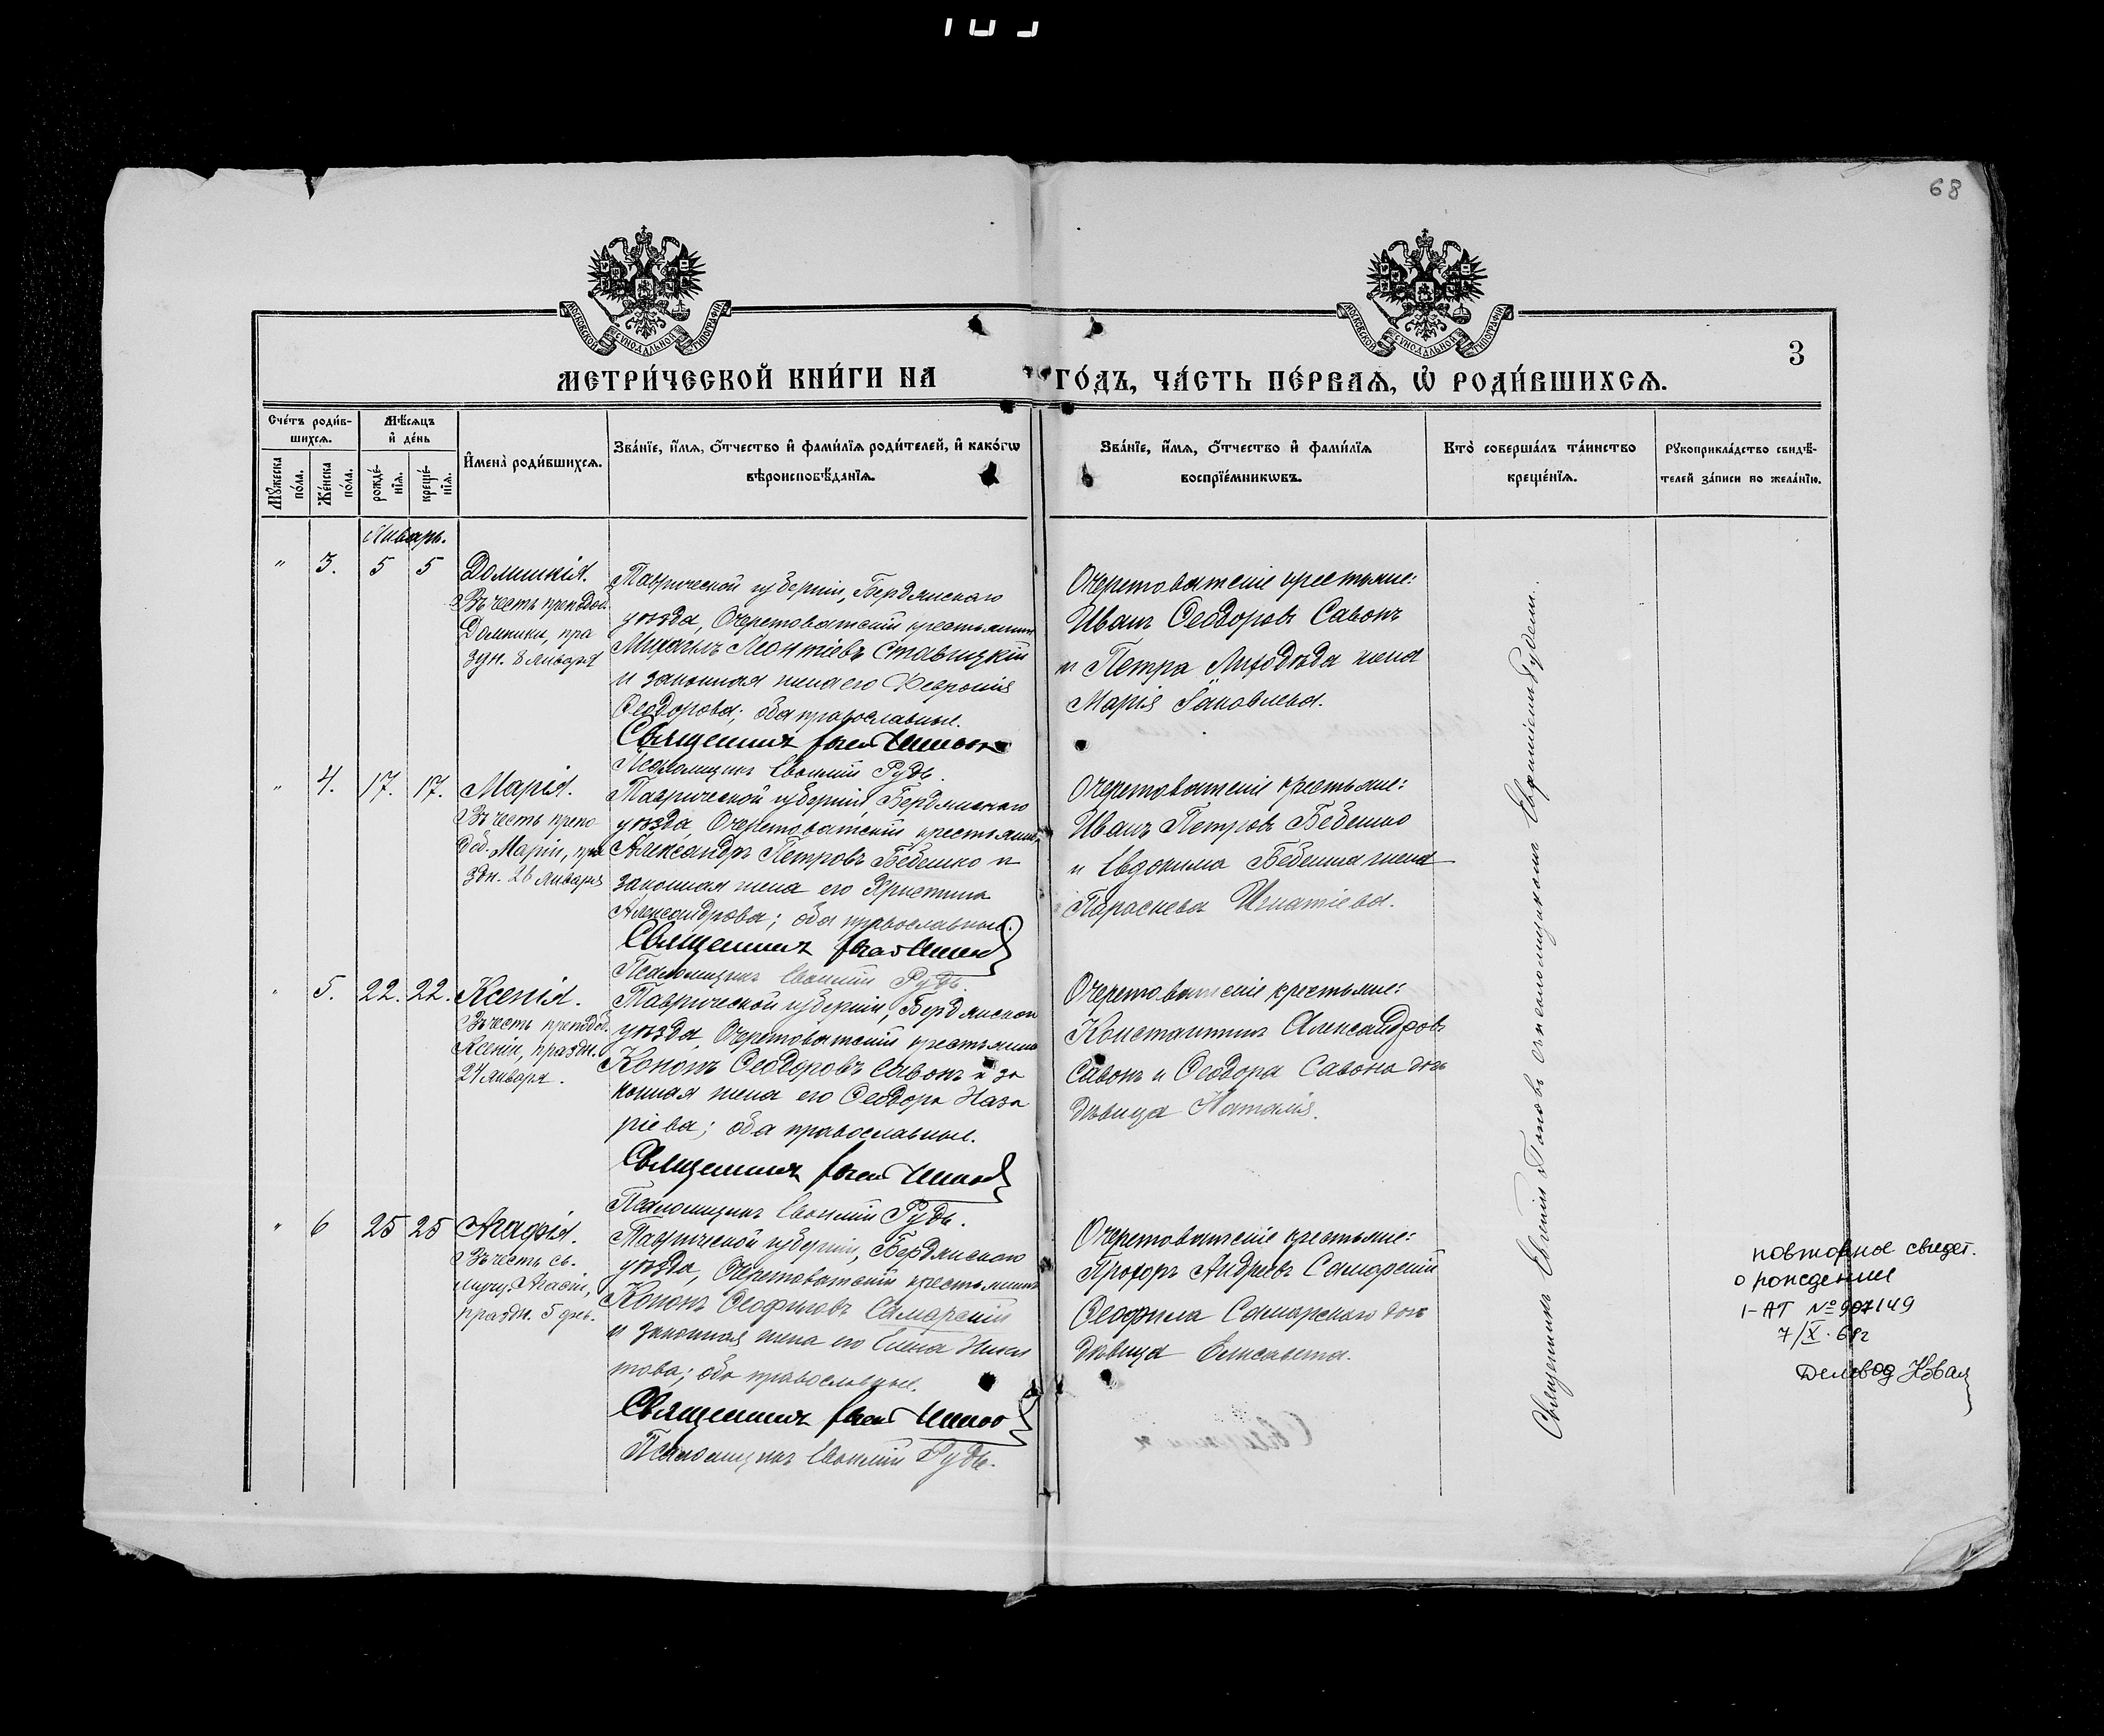 68
МОСКОВСКОЙ СѴНОДАЛЬНОЙ ТИПОГРАФІИ
МОСКОВСКОЙ СѴНОДАЛЬНОЙ ТИПОГРАФІИ
3
МЕТРИ́ЧЕСКОЙ КНИ́ГИ НА ГО́ДЪ, ЧА́СТЬ ПЕ́РВАѦ, Ѡ҆ РОДИ́ВШИХСѦ.
Сче́тъ роди́в-
шихсѧ.
Мꙋ́жеска по́ла.
Же́нска по́ла.
Мѣ́сѧцъ
и҆ де́нь
рожде́-
нїѧ.
креще́-
нїѧ.
И҆мена̀ роди́вшихсѧ.
Зва́нїе, и҆́мѧ, ѻ҆́тчество и҆ фами́лїѧ роди́телей, и҆ како́гѡ
вѣроисповѣ́данїѧ.
Зва́нїе, и҆́мѧ, ѻ҆́тчество и҆ фами́лїѧ
воспрїе́мникѡвъ.
Кто̀ соверша́лъ та́инство
креще́нїѧ.
Рꙋкоприкла́дство свидѣ́-
телей за́писи по жела́нїю.
Январь.
" 3. 5 5
Домникія.
Въ честь преподоб.
Домники, пра
здн. 8 января
Таврической губерніи, Бердянскаго
уѣзда, Очеретоватскій крестьянинъ
Михаилъ Леонтіевъ Ставицкій
и законная жена его Февронія
Ѳеодорова; оба православные.
Священникъ
Псаломщикъ Евѳимій Рудь.
Очеретоватскіе крестьяне:
Иванъ Ѳеодоровъ Савонъ
и Петра Лиходѣда жена
Марія Іаковлева.
" 4. 17. 17.
Марія.
Въ честь препо
доб. Маріи, пра
здн. 26 января
Таврической губерніи, Бердянскаго
уѣзда, Очеретоватскій крестьянинъ
Александръ Петровъ Бебешко и
законная жена его Христина
Александрова; оба православные.
Священникъ
Псаломщикъ Евѳимій Рудь.
Очеретоватскіе крестьяне:
Иванъ Петровъ Бебешко
и Евдокима Бебешка жена
Параскева Игнатіева.
" 5. 22. 22.
Ксенія.
Въ честь преподоб.
Ксеніи, праздн.
24 января.
Таврической губерніи, Бердянскаго
уѣзда, Очеретоватскій крестьянинъ
Кононъ Ѳеодоровъ Савонъ и за
конная жена его Ѳеодора Наза
ріева; оба православные.
Священникъ
Псаломщикъ Евѳимій Рудь.
Очеретоватскіе крестьяне:
Константинъ Александровъ
Савонъ и Ѳеодора Савона дочь
дѣвица Наталія.
" 6 25 25
Агафія.
Въ честь св.
муч. Агафіи,
праздн. 5 фев.
Таврической губерніи, Бердянскаго
уѣзда, Очеретоватскій крестьянинъ
Кононъ Ѳеофиловъ Самарскій
и законная жена его Елена Ники
това; оба православные.
Священникъ
Псаломщикъ Евѳимій Рудь.
Очеретоватскіе крестьяне:
Прохоръ Андреевъ Самарскій
Ѳеофила Самарскаго дочь
дѣвица Елисавета.
Священникъ Евгеній Поповъ съ псаломщикомъ Евѳиміемъ Рудемъ.
повторное свидет.
о рождении
I-АТ № 907149
7/X. 68 г
Деловод